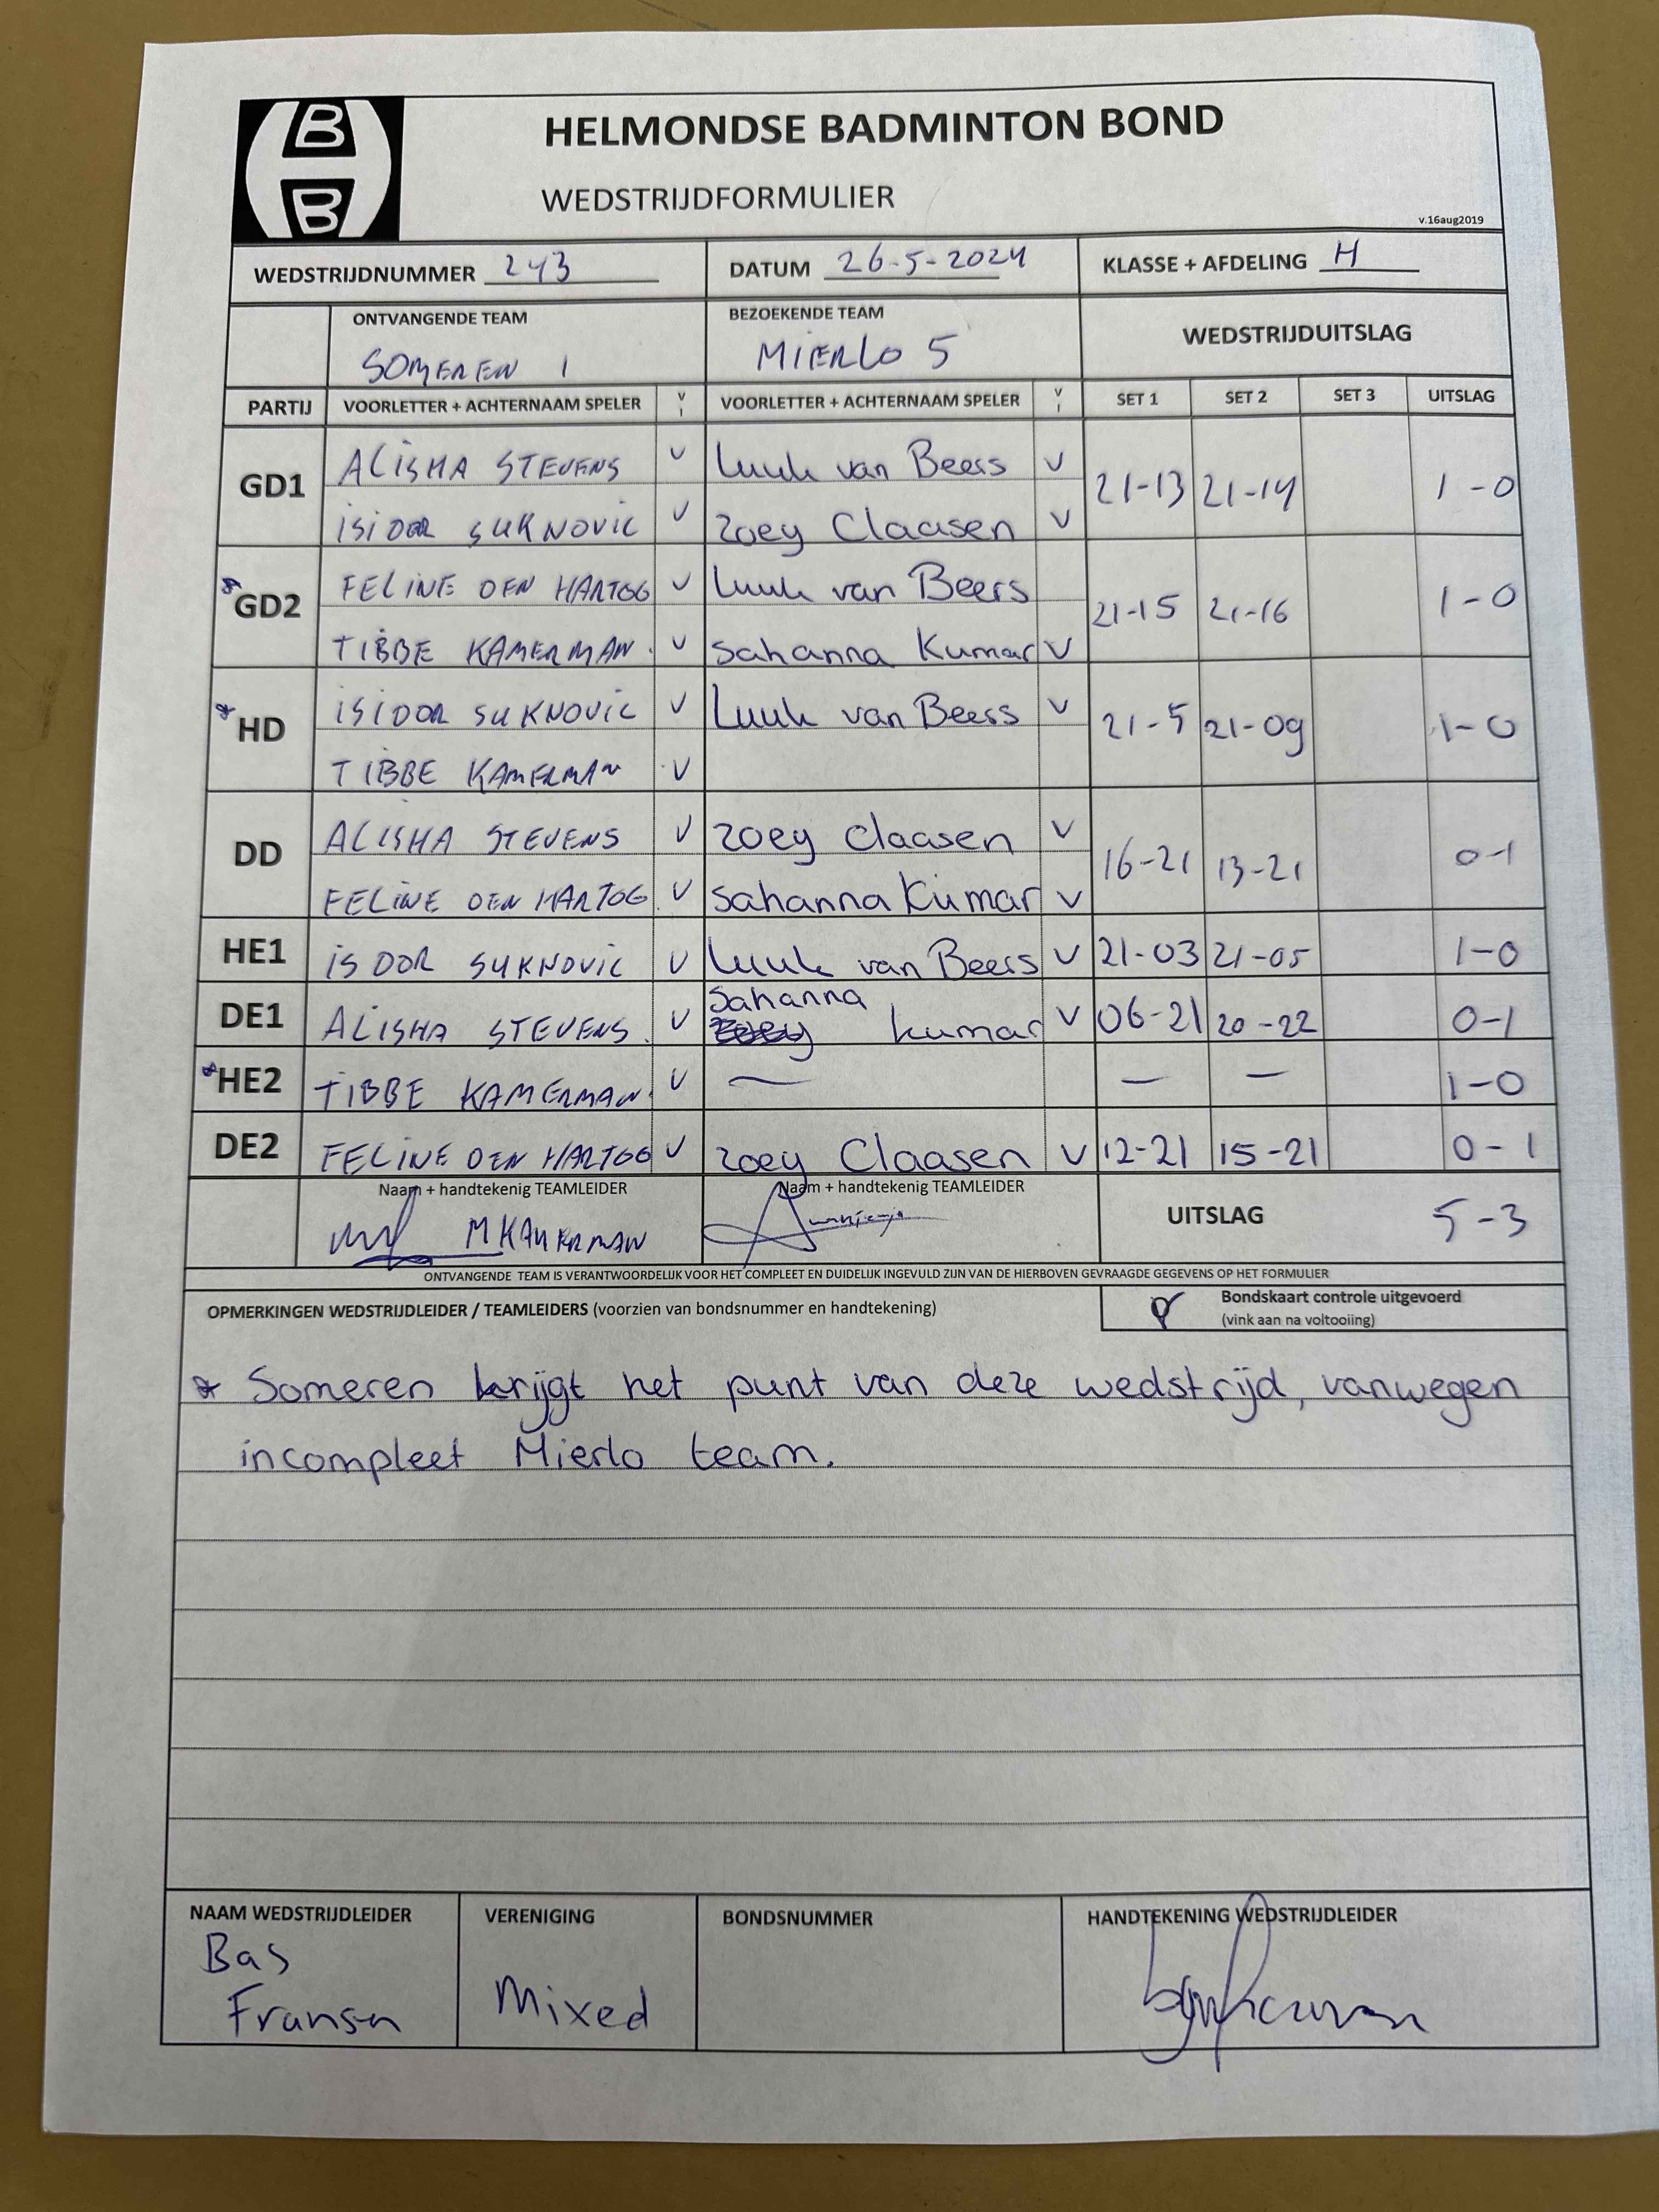 HELMONDSE BADMINTON BOND
WEDSTRIJDFORMULIER
v.16aug2019
WEDSTRIJDNUMMER 243 DATUM 26-5-2024 KLASSE + AFDELING H
ONTVANGENDE TEAM BEZOEKENDE TEAM WEDSTRIJDUITSLAG
SOMEREN 1 MIERLO 5
PARTIJ VOORLETTER + ACHTERNAAM SPELER V VOORLETTER + ACHTERNAAM SPELER V SET 1 SET 2 SET 3 UITSLAG
GD1 ALISHA STEVENS V Luuk van Beers V 21-13 21-14 1-0
ISIDOR SUKNOVIC V Zoey Claasen V
*GD2 FELINE DEN HARTOG V Luuk van Beers 21-15 21-16 1-0
TIBBE KAMERMAN V Sahanna Kumar V
*HD ISIDOR SUKNOVIC V Luuk van Beers V 21-5 21-09 1-0
TIBBE KAMERMAN V
DD ALISHA STEVENS V Zoey Claasen V 16-21 13-21 0-1
FELINE DEN HARTOG V Sahanna Kumar V
HE1 ISDOR SUKNOVIC V Luuk van Beers V 21-03 21-05 1-0
DE1 ALISHA STEVENS V Sahanna Kumar V 06-21 20-22 0-1
*HE2 TIBBE KAMERMAN V — — — 1-0
DE2 FELINE DEN HARTOG V Zoey Claasen V 12-21 15-21 0-1
Naam + handtekenig TEAMLEIDER Naam + handtekenig TEAMLEIDER UITSLAG 5-3
M KAMERMAN
ONTVANGENDE TEAM IS VERANTWOORDELIJK VOOR HET COMPLEET EN DUIDELIJK INGEVULD ZIJN VAN DE HIERBOVEN GEVRAAGDE GEGEVENS OP HET FORMULIER
OPMERKINGEN WEDSTRIJDLEIDER / TEAMLEIDERS (voorzien van bondsnummer en handtekening) Bondskaart controle uitgevoerd
(vink aan na voltooiing)
* Someren krijgt het punt van deze wedstrijd, vanwegen
incompleet Mierlo team.
NAAM WEDSTRIJDLEIDER VERENIGING BONDSNUMMER HANDTEKENING WEDSTRIJDLEIDER
Bas
Fransen Mixed